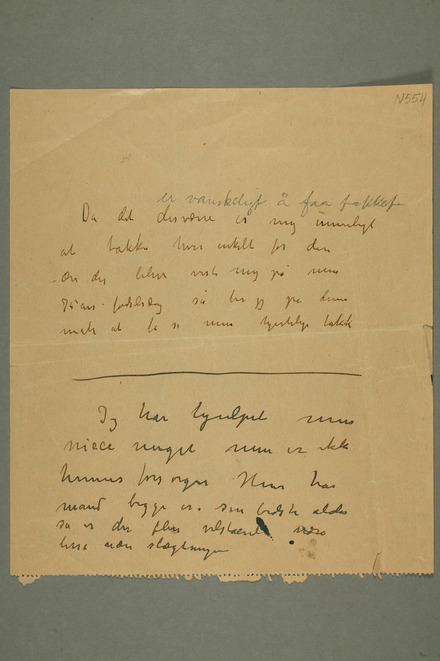 N554
er vanskeligt å faa takket
Da det desværre er mig umuligt
at takke hver enkelt for den
ære der blev vist mig på min
75 års fødselsdag så ber jeg på denne
måte at få si min hjerteligste takk
Jeg har hjulpet min
niece meget men er ikke
hennes forsørger Hun har
mand begge i sin bedste alder
så er der flere velstående